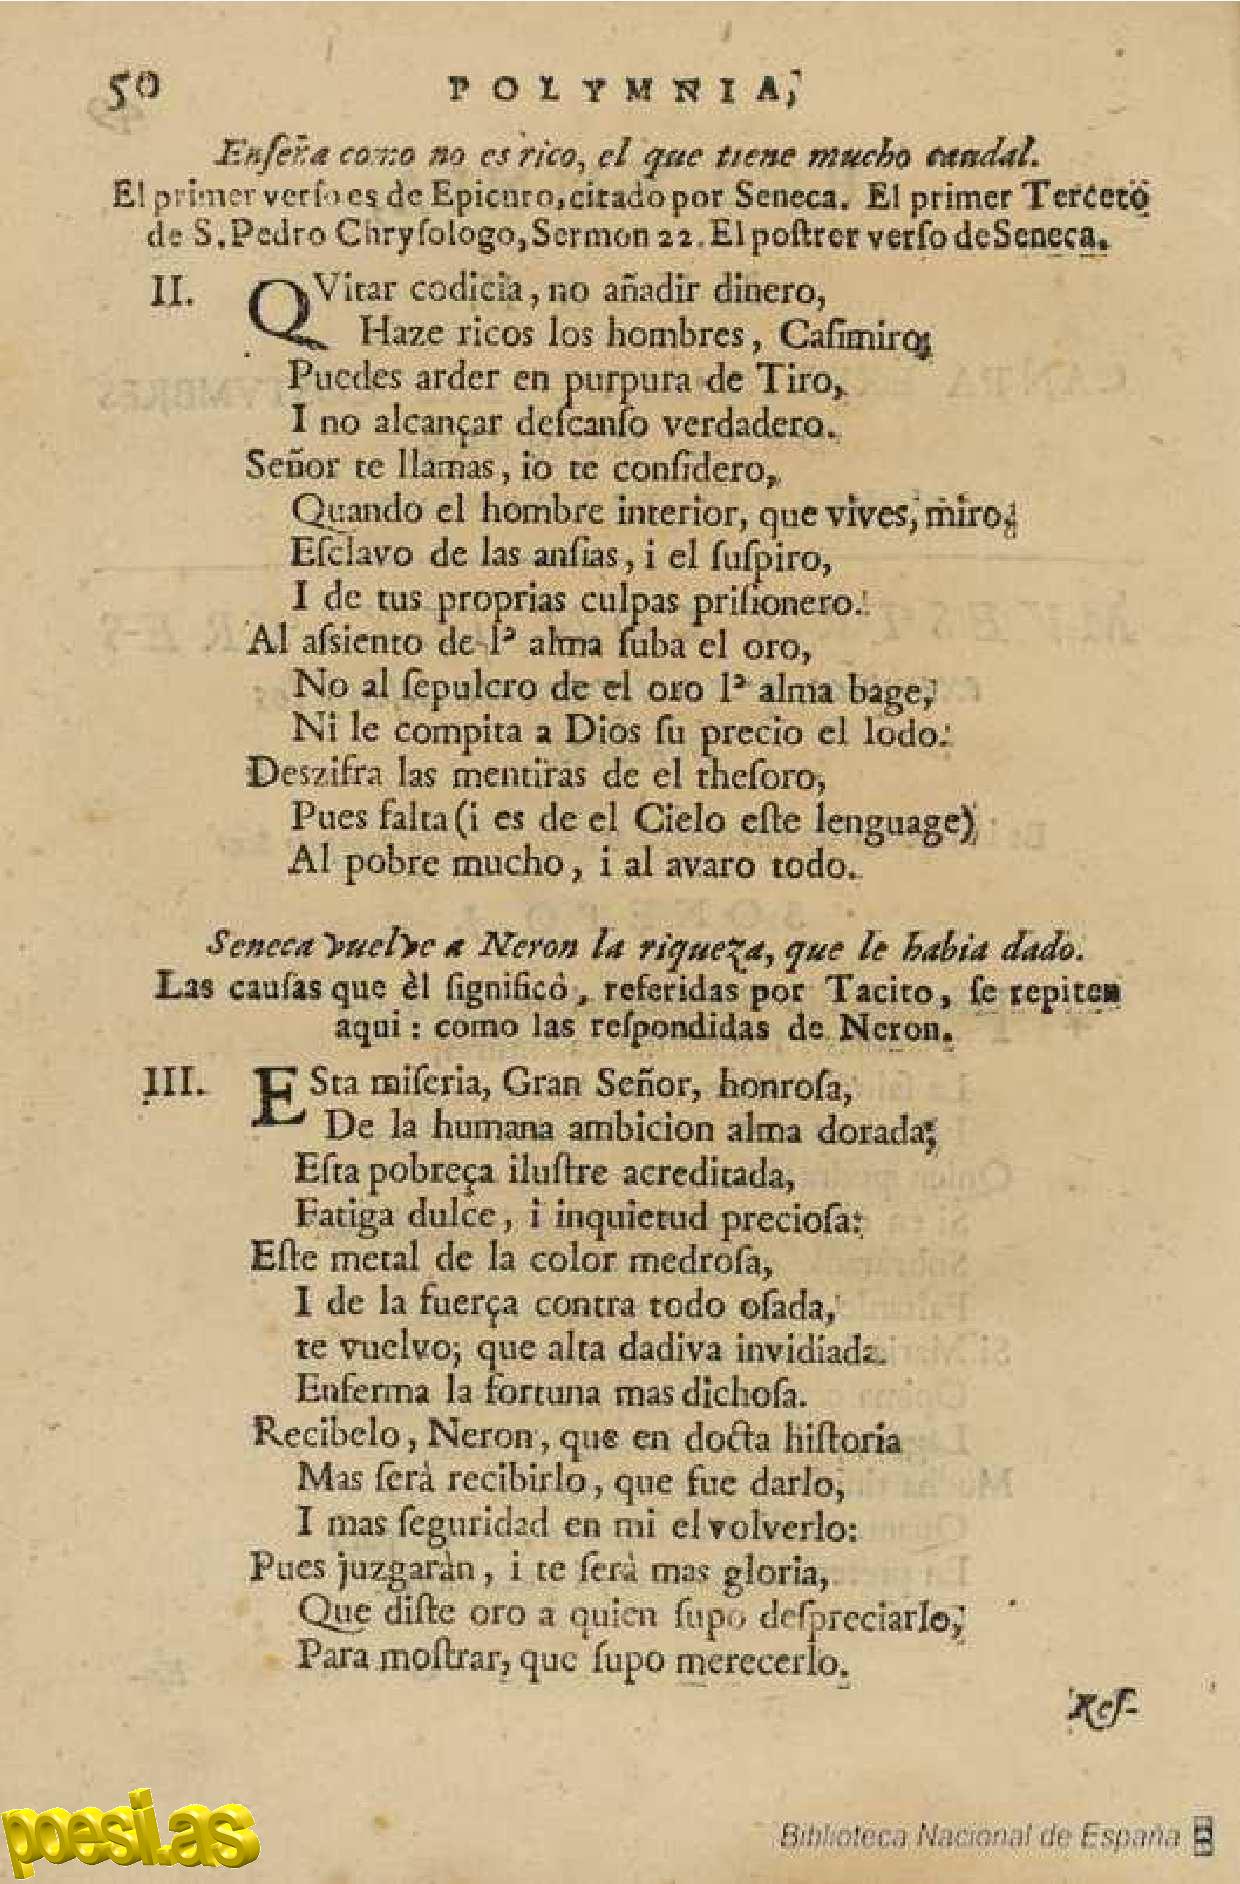 50 POLYMNIA,
Enſeña como no es rico, el que tiene mucho caudal.
El primer verſo es de Epicuro, citado por Seneca. El primer Terceto
de S. Pedro Chryſologo, Sermon 22. El poſtrer verſo de Seneca.
II. QVitar codicia, no añadir dinero,
Haze ricos los hombres, Caſimiro;
Puedes arder en purpura de Tiro,
I no alcançar deſcanſo verdadero.
Señor te llamas, io te conſidero,
Quando el hombre interior, que vives, miro,
Eſclavo de las anſias, i el ſuſpiro,
I de tus proprias culpas priſionero.
Al aſsiento de lª alma ſuba el oro,
No al ſepulcro de el oro lª alma bage,
Ni le compita a Dios ſu precio el lodo.
Deszifra las mentiras de el theſoro,
Pues falta (i es de el Cielo eſte lenguage)
Al pobre mucho, i al avaro todo.
Seneca vuelve a Neron la riqueza, que le habia dado.
Las cauſas que èl ſignificò, referidas por Tacito, ſe repiten
aqui: como las reſpondidas de Neron.
III. ESta miſeria, Gran Señor, honroſa,
De la humana ambicion alma dorada;
Eſta pobreça iluſtre acreditada,
Fatiga dulce, i inquietud precioſa:
Eſte metal de la color medroſa,
I de la fuerça contra todo oſada,
te vuelvo; que alta dadiva invidiada
Enferma la fortuna mas dichoſa.
Recibelo, Neron, que en docta hiſtoria
Mas ſerà recibirlo, que fue darlo,
I mas ſeguridad en mi el volverlo:
Pues juzgaràn, i te ſerà mas gloria,
Que diſte oro a quien ſupo deſpreciarlo,
Para moſtrar, que ſupo merecerlo.
Reſ-
poesi.as
Biblioteca Nacional de España